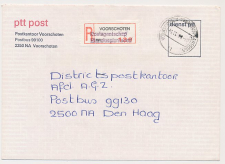 ptt post
Postkantoor Voorschoten
Postbus 99100
2250 NA Voorschoten
R
VOORSCHOTEN
Dienst ptt
Districtspostkantoor
Afd. A.G.Z
Postbus 99130
2500 NA Den Haag